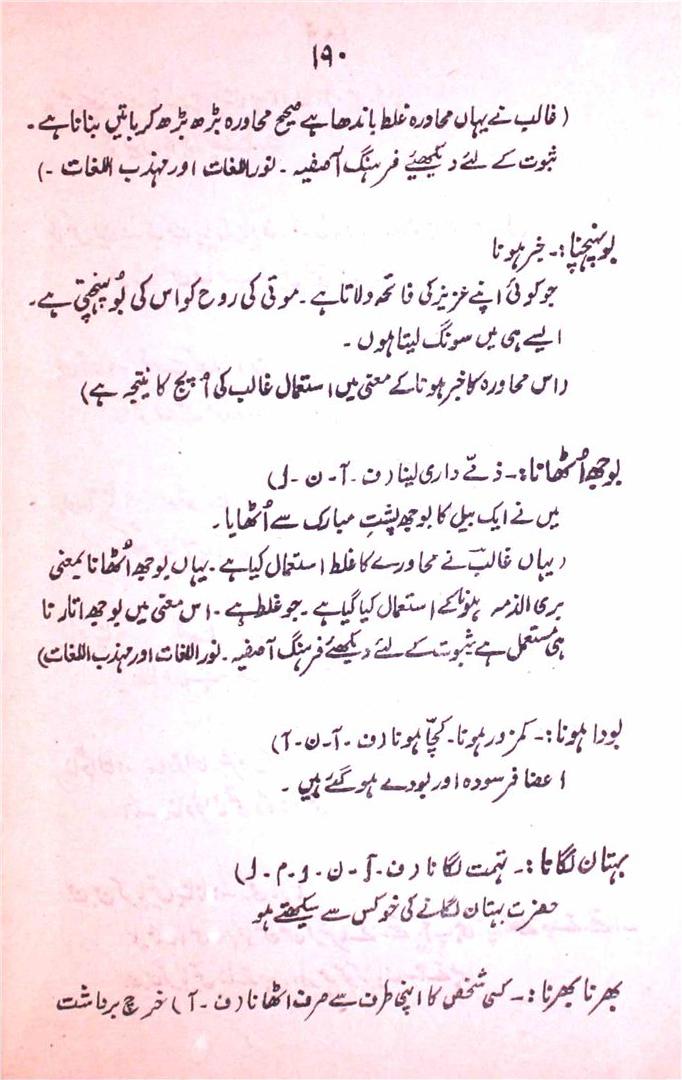 ۱۹۰
( غالب نے یہاں محاورہ غلط باندھا ہے صحیح محاورہ بڑھ بڑھ کر باتیں بنانا ہے ۔
ثبوت کے لئے دیکھئیے فرہنگ آصفیہ ۔ نور اللغات اور مہذب اللغات ۔)
بو پہنچنا :۔ خبر ہونا
جو کوئی اپنے عزیز کی فاتحہ دلاتا ہے ۔ موتی کی روح کو اس کی بُو پہنچتی ہے ۔
ایسے ہی میں سونگ لیتا ہوں ۔
(اس محاورہ کا خبر ہونا کے معنی میں استعمال غالب کی کا نتیجہ ہے)
بوجھ اُٹھانا :۔ ذمّے داری لینا (ف ۔ آ ۔ ن ۔ ل)
میں نے ایک بیل کا بوجھ پشتِ مبارک سے اُٹھایا ۔
(یہاں غالبؔ نے محاورے کا غلط استعمال کیا ہے ۔ یہاں بوجھ اُٹھانا بمعنی
بری الذمہ ہونا کے استعمال کیا گیا ہے ۔ جو غلط ہے ۔ اس معنی میں بوجھ اتارنا
ہی مستعمل ہے ثبوت کے لئے دیکھئے فرہنگ آصفیہ ۔ نور اللغات اور مہذب اللغات)
بودا ہونا :۔ کمزور ہونا ۔ کچّا ہونا (ف ۔ آ ۔ ن ۔ آ)
اعضا فرسودہ اور بودے ہو گئے ہیں ۔
بہتان لگانا :۔ تہمت لگانا (ف ۔ آ ۔ ن ۔ و ۔ م ۔ ل)
حضرت بہتان لگانے کی خو کس سے سیکھتے ہو
بھرنا بھرنا :۔ کسی شخص کا اپنی طرف سے صرف اٹھانا (ف ۔ آ) خرچ برداشت